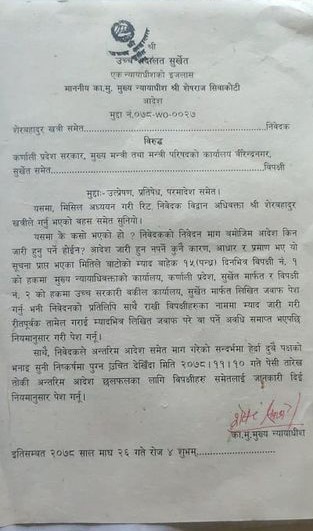 श्री
उच्च अदालत सुर्खेत
एक न्यायाधीशको इजलास
माननीय का.मु. मुख्य न्यायाधीश श्री शेषराज सिवाकोटी
आदेश
मुद्दा नं.०७८-WO-००२७
शेरबहादुर खत्री समेत.......................................................निवेदक
विरुद्ध
कर्णाली प्रदेश सरकार, मुख्य मन्त्री तथा मन्त्री परिषदको कार्यालय बीरेन्द्रनगर,
सुर्खेत समेत..............................................................विपक्षी
मुद्दाः- उत्प्रेषण, प्रतिषेध, परमादेश समेत।
यसमा, मिसिल अध्ययन गरी रिट निवेदक विद्वान अधिवक्ता श्री शेरबहादुर
खत्रीले गर्नु भएको बहस समेत सुनियो।
यसमा के कसो भएको हो ? निवेदकको निवेदन माग बमोजिम आदेश किन
जारी हुनु पर्ने होईन? आदेश जारी हुन नपर्ने कुनै कारण, आधार र प्रमाण भए यो
सूचना प्राप्त भएका मितिले बाटोको म्याद बाहेक १५(पन्ध्र) दिनभित्र विपक्षी नं. १
को हकमा मुख्य न्यायाधिवक्ताको कार्यालय, कर्णाली प्रदेश, सुर्खेत मार्फत र विपक्षी
नं. २ को हकमा उच्च सरकारी वकील कार्यालय, सुर्खेत मार्फत लिखित जवाफ पेश
गर्नु भनी निवेदनको प्रतिलिपि साथै राखी विपक्षीहरूका नाममा म्याद जारी गरी
रीतपूर्वक तामेल गराई म्यादभित्र लिखित जवाफ परे वा पर्ने अवधि समाप्त भएपछि
नियमानुसार गरी पेश गर्नू।
साथै, निवेदकले अन्तरिम आदेश समेत माग गरेको सन्दर्भमा हेर्दा दुवै पक्षको
भनाइ सुनी निष्कर्षमा पुग्न उचित देखिँदा मिति २०७८।११।१० गते पेसी तारेख
तोकी अन्तरिम आदेश छलफलका लागि विपक्षीहरु समेतलाई जानकारी दिई
नियमानुसार पेश गर्नू।
का.मु.मुख्य न्यायाधीश
इतिसम्वत २०७८ साल माघ २६ गते रोज ४ शुभम्.......................